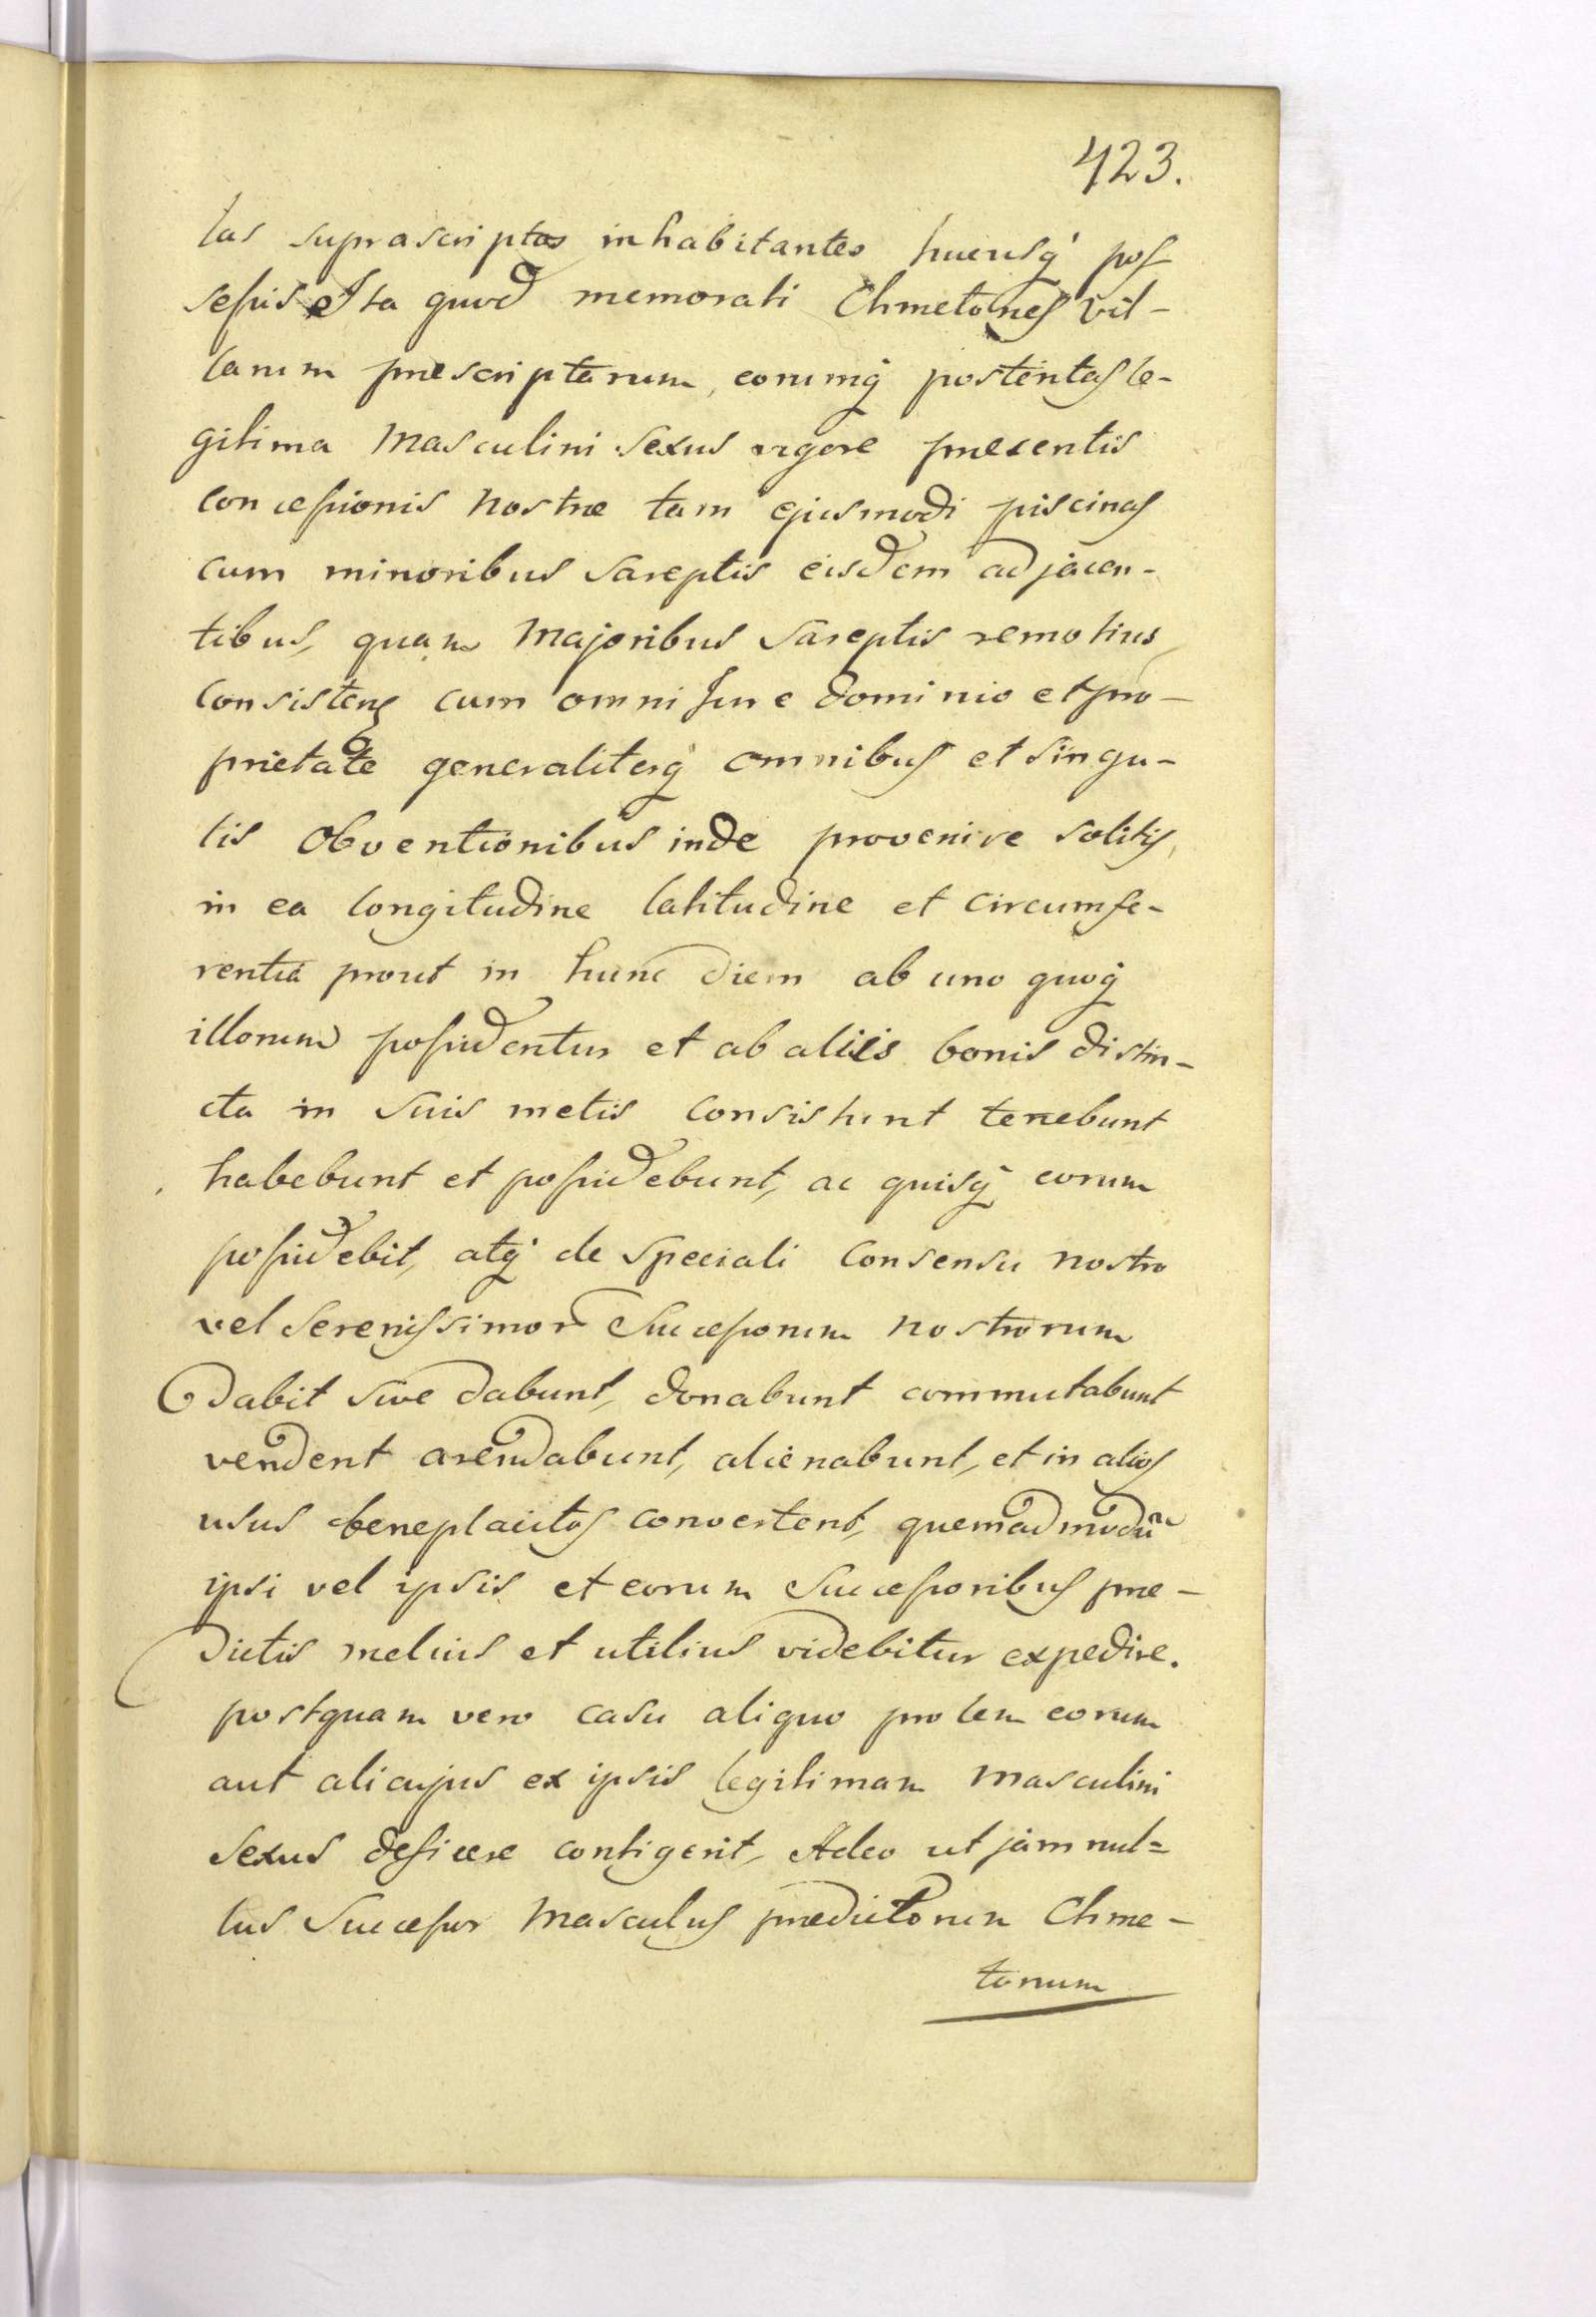 423.
las suprascriptas inhabitantes hucusq́ pos
sessis Ita quod memorati Chmetones vil-
larum præscriptarum, eorumq́ posteritas le-
gitima Masculini Sexus vigore præsentis
concessionis Nostræ tam ejusmodi piscinas
cum minoribus Sareptis eisdem adjacen-
tibus, quam Majoribus Sareptis remotius
consistens cum omni Jure dominio et pro-
prietate generaliterq́ omnibus et singu-
lis Obventionibus inde provenire solitis,
in ea longitudine latitudine et circumfe-
rentia prout in hunc diem ab uno quoq́
illorum possidentur et ab aliis bonis distin-
cta in suis metis consistunt tenebunt
habebunt et possidebunt, ac quisq́ eorum
possidebit, atq́ de speciali consensu nostro
vel Serenissimor Successorum nostrorum
Dabit sive dabunt, donabunt commutabunt
vendent arendabunt, alienabunt, et in alios
usus beneplacitos convertent, quemadmodū
ipsi vel ipsis et eorum Successoribus præ-
dictis melius et utilius videbitur expedire.
postquam vero casu aliquo prolem eorum
aut alicujus ex ipsis legitimam Masculini
Sexus deficere contigerit, Adeo ut jam nul=
lus Successor Masculus prædictorum Chme-
tonum